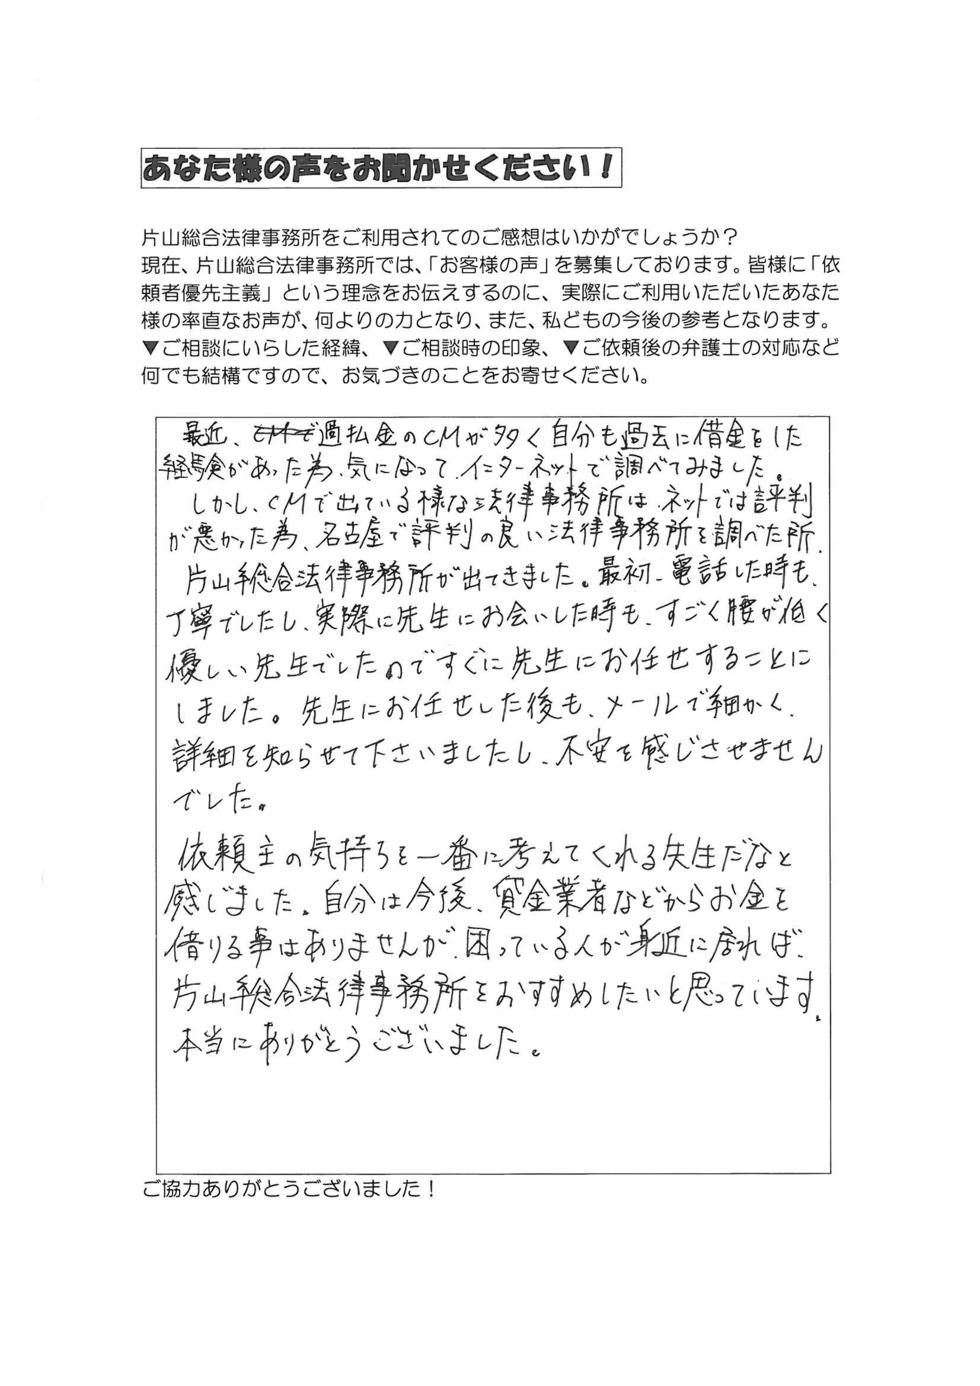 あなた様の声をお聞かせください！
片山総合法律事務所をご利用されてのご感想はいかがでしょうか？
現在、片山総合法律事務所では、「お客様の声」を募集しております。皆様に「依
頼者優先主義」という理念をお伝えするのに、実際にご利用いただいたあなた
様の率直なお声が、何よりの力となり、また、私どもの今後の参考となります。
▼ご相談にいらした経緯、▼ご相談時の印象、▼ご依頼後の弁護士の対応など
何でも結構ですので、お気づきのことをお寄せください。
最近、過払金のCMが多く自分も過去に借金をした
経験があった為、気になって、インターネットで調べてみました。
しかし、CMで出ている様な法律事務所は、ネットでは評判
が悪かった為、名古屋で評判の良い法律事務所を調べた所、
片山総合法律事務所が出てきました。最初、電話した時も、
丁寧でしたし、実際に先生にお会いした時も、すごく腰が低く
優しい先生でしたのですぐに先生にお任せすることに
しました。先生にお任せした後も、メールで細かく、
詳細を知らせて下さいましたし、不安を感じさせません
でした。
依頼主の気持ちを一番に考えてくれる先生だなと
感じました。自分は今後、貸金業者などからお金を
借りる事はありませんが、困っている人が身近に居れば、
片山総合法律事務所をおすすめしたいと思っています。
本当にありがとうございました。
ご協力ありがとうございました！